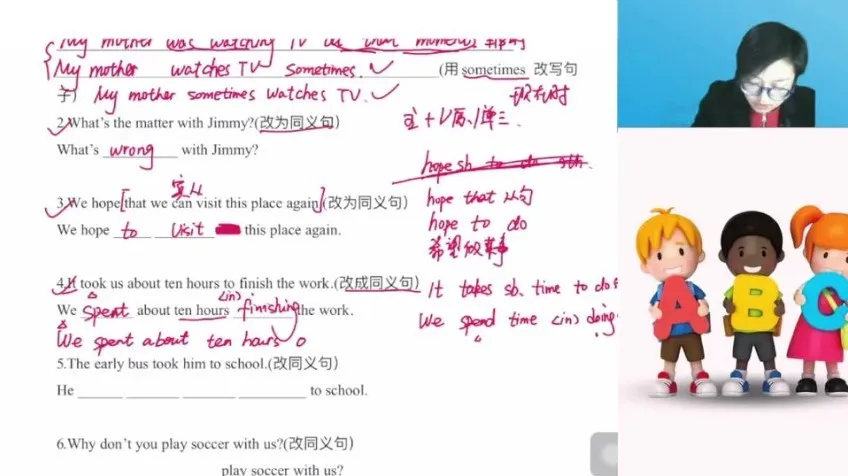 My mother was watching TV at that moment
My mother watches TV sometimes. (用 sometimes 改写句
子) My mother sometimes watches TV. 现在时
2.What's the matter with Jimmy?(改为同义句) 主+V原/单三.
What's wrong with Jimmy?
hope sb to do sth.
宾从
3.We hope [that we can visit this place again](改为同义句) hope that 从句
We hope to visit this place again. hope to do
希望做某事
4.It took us about ten hours to finish the work.(改成同义句) It takes sb. time to do
(in)
We spent about ten hours finishing the work. We spend time (in) doing
We spent about ten hours o
5.The early bus took him to school.(改同义句)
He ____ ____ ____ ____ to school.
6.Why don't you play soccer with us?(改同义句)
____ play soccer with us?
A B C